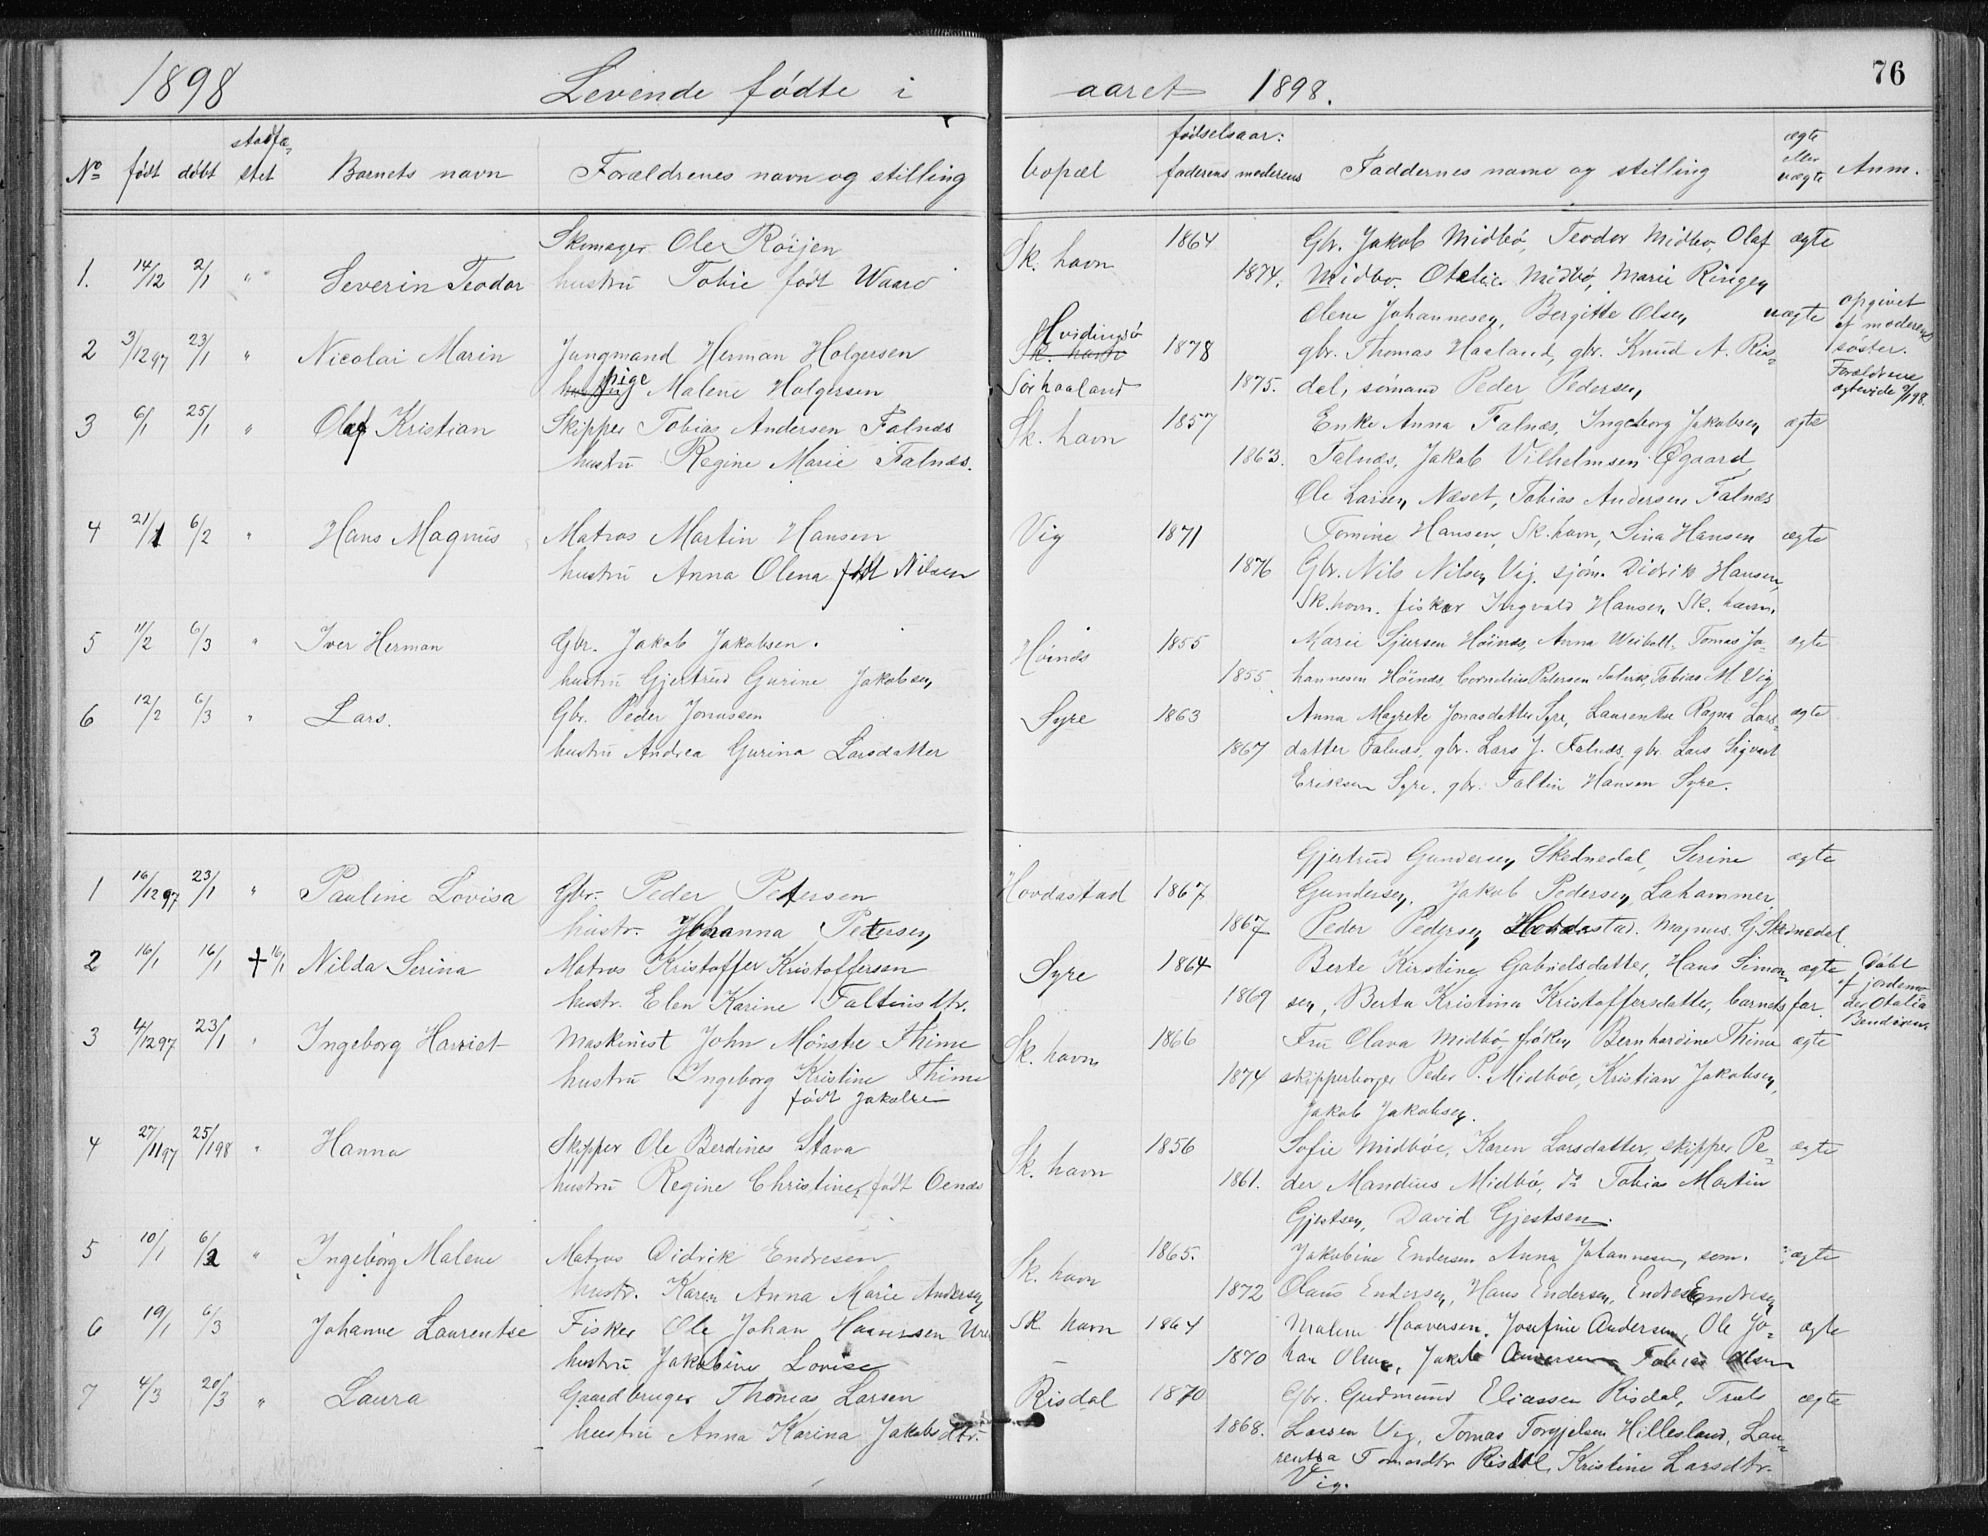 1898 Levende fødte i aaret 1898. 76
No født døbt stadfæ- stet Barnets navn Forældrenes navn og stilling bopæl fødselsaar: faderens moderens Faddernes navne og stilling ægte eller uægte Anm.
Skomager Ole Röijen 1864 Gbr. Jakob Midbö, Teodor Midbö, Olaf ægte
1. 14/12 2/1 " Severin Teodor hustru Tobie født Waard Sk. havn 1874. Midbö. Otelie Midbö, Marie Ringen
Olene Johannesen, Bergitte Olsen uægte opgivet af moderens
2 3/12 97 23/1 " Nicolai Marin Jungmand Herman Holgersen Hvidingsö Sk. havn 1878 gbr. Thomas Haaland, gbr. Knud A. Ris- söster.
hustru pige Malene Holgersen Sörhaaland 1875. dal, sömand Peder Pedersen, Forældrene ægtevide 2/1 98.
3 6/1 25/1 " Olaf Kristian Skipper Tobias Andersen Falnes Sk. havn 1857 Enke Anna Falnæs, Ingeborg Jakobsen ægte
hustru Regine Marie Falnæs. 1863. Falnæs, Jakob Vilhelmsen Øgaard
Ole Larsen, Næset, Tobias Andersen Falnæs
4 21/1 6/2 " Hans Magnus Matros Martin Hansen Vig 1871 Tomine Hansen, Sk. havn, Sina Hansen ægte
hustru Anna Olena født Nilsen 1876 Gbr. Nils Nilsen, Vig. sjöm. Didrik Hansen,
Sk. havn. fisker Ingvald Hansen, Sk. havn.
5 11/2 6/3 " Iver Herman Gbr. Jakob Jakobsen. Höinæs 1855 Marie Sjursen Höinæs, Anna Tomas Jo- ægte
hustru Gjertrud Gurine Jakobsen, 1855. hannesen Höinæs, Cornelius Petersen Tobias M. Vig
6 12/2 6/3 " Lars. Gbr. Peder Jonassen Syre 1863 Anna Magrete Jonasdatter Syre, Laurentse Ragna Lars- ægte
hustru Andrea Gurina Larsdatter 1867 datter Falnæs, gbr. Lars J. Falnæs, gbr. Lars Sigvart
Eriksen Syre. gbr. Faltin Hansen Syre.
Gjertrud Gundersen, Skednedal, Serine ægte
1 16/12 97 23/1 " Pauline Lovisa Gbr. Peder Petersen Hovdastad 1867 Gundersen, Jakob Pedersen, Lahammer,
hustr. Johanna Petersen, 1867 Peder Pedersen Hovdastad. Magnus G. Skednedal
2 16/1 16/1 + 16/1 Nilda Serina Matros Kristoffer Kristoffersen Syre 1864 Berte Kirstine Gabrielsdatter, Hans Simon- ægte Døbt
hustr. Elen Karine Faltinsdtr. 1869 sen, Berta Kristina Kristoffersdatter, barnets far. af jordemo- der Otalia
3 4/12 97 23/1 " Ingeborg Harriet Maskinist John Mönstre Thime Sk. havn 1866 Fru Olava Midbö, fröken Bernhardine Thime ægte Bendixen
hustru Ingeborg Kristine Thime 1874 skipperborger Peder P. Midböe, Kristian Jakobsen,
født Jakobsen Jakob Jakobsen.
4 27/11 97 25/1 98 " Hanna Skipper Ole Berdines Stava Sk. havn 1856 Sofie Midböe, Karen Larsdatter, skipper Pe- ægte
hustru Regine Christine, født Oenæs 1861. der Mandius Midbö, do Tobias Martin
Gjestsen, David Gjestsen.
5 10/1 6/2 " Ingeborg Malene Matros Didrik Endresen Sk. havn 1865. Jakobine Endersen Anna Johannesen, söm. ægte
hustr. Karen Anna Marie Andersen, 1872 Olaus Endersen, Hans Endersen, Endre Endresen
6 19/1 6/3 Johanne Laurentse Fisker Ole Johan Haaversen Sk. havn 1864 Malene Haaversen, Josefine Andersen, Ole Jo- ægte
hustru Jakobine Lovise 1870 han Olsen, Jakob Andersen Tobias Olsen
7 4/3 20/3 " Laura Gaardbruger Thomas Larsen Risdal 1870 Gbr. Gudmund Eliassen Risdal, Truls ægte
hustru Anna Karina Jakobsdtr. 1868. Larsen Vig, Tomas Torgjelsen Hillesland, Lau-
rentsa Tomasdtr Risdal, Kristine Larsdtr.
Vig.